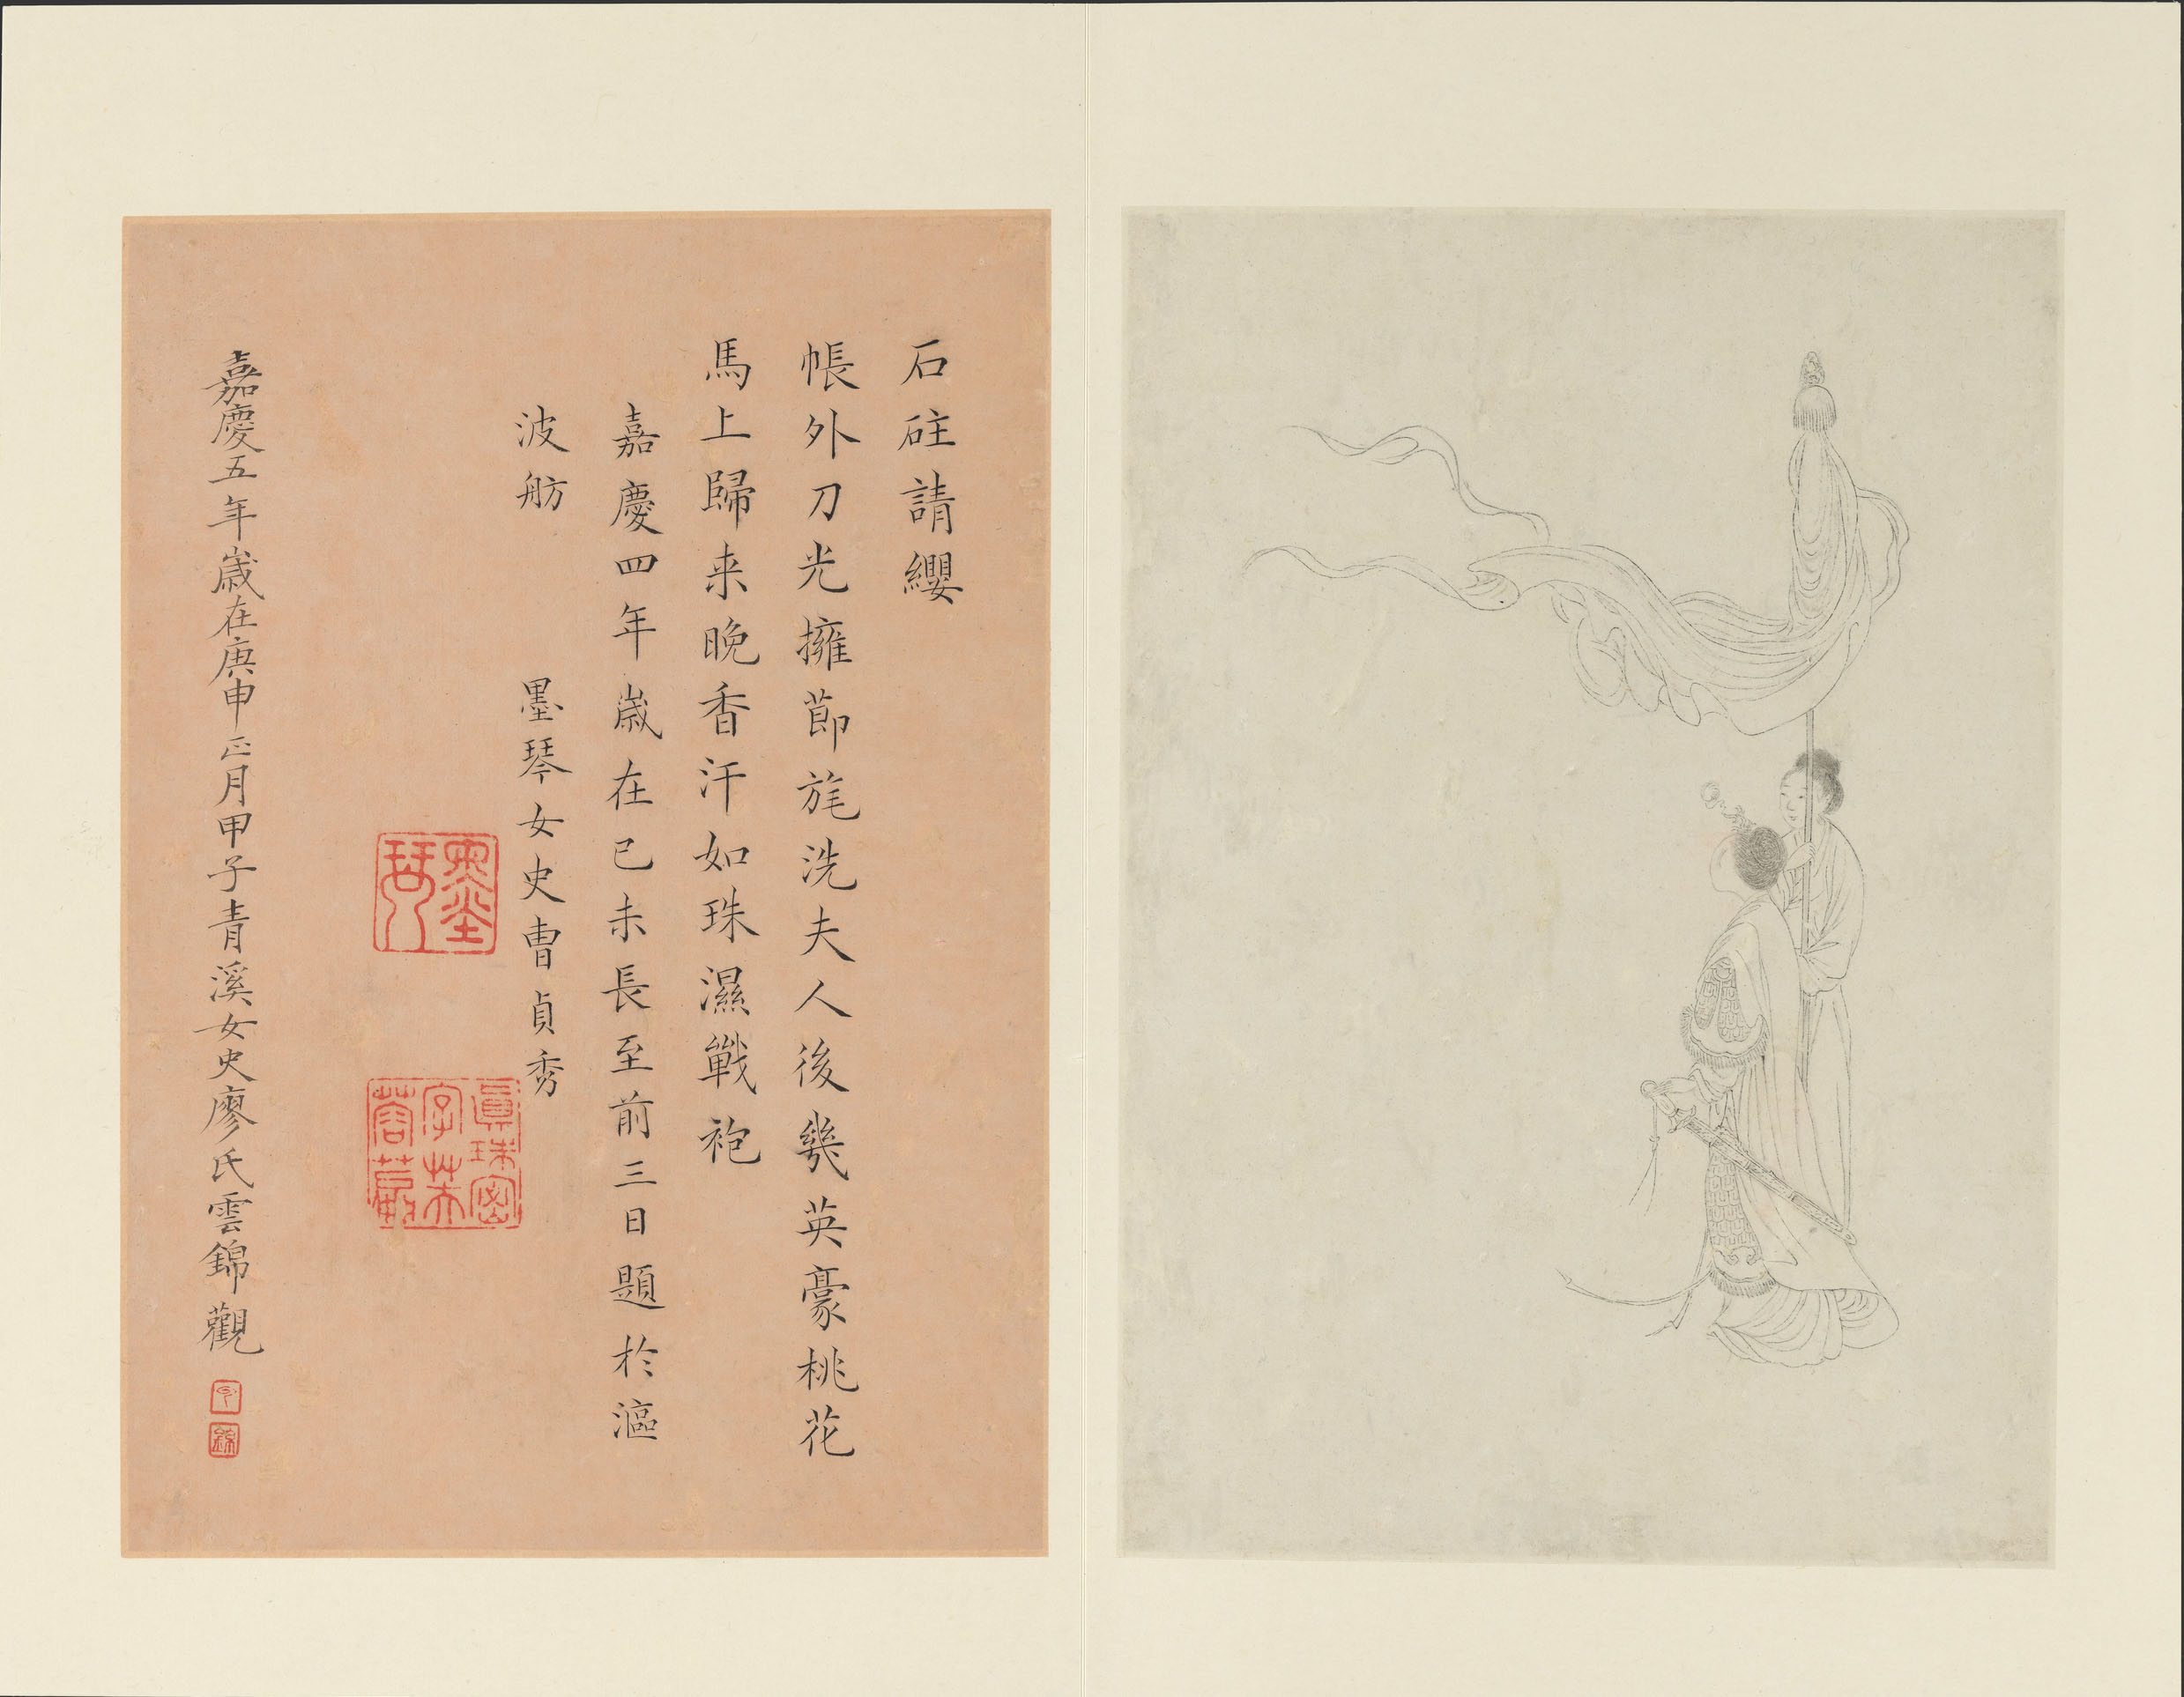 石砫請纓
帳外刀光擁節旄洗夫人後幾英豪桃花
馬上歸来晚香汗如珠濕戰袍
嘉慶四年歲在己未長至前三日題於漚
波舫
墨琴女史曹貞秀
墨琴
真珠密字芙蓉篆
嘉慶五年歲在庚申正月甲子青溪女史廖氏雲錦觀
錦